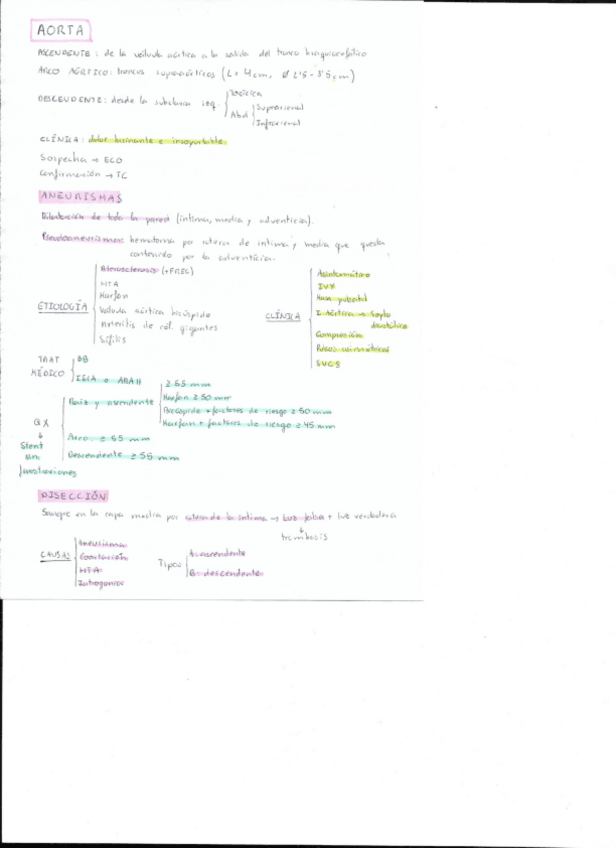 AORTA
ASCENDENTE: de la válvula aórtica a la salida del tronco braquiocefálico
ARCO AÓRTICO: troncos supraaórticos (L= 4cm, Ø 2'5-3'5cm)
DESCENDENTE: desde la subclavia izq.
Torácica
Abd
Suprarrenal
Infrarrenal
CLÍNICA: dolor lacinante e insoportable
Sospecha → ECO
Confirmación → TC
ANEURISMAS
Dilatación de toda la pared (íntima, media y adventicia).
Pseudoaneurismas: hematoma por rotura de íntima y media que queda
contenido por la adventicia.
ETIOLOGÍA
Aterosclerosis (+FREC)
HTA
Marfan
Válvula aórtica bicúspide
Arteritis de cél. gigantes
Sífilis
CLÍNICA
Asintomático
IVY
Masa pulsátil
I. Aórtica → Soplo
diastólico
Compresión
Pulsos asimétricos
TRAT
MÉDICO
BB
IECA o ARA II
QX
↓
Stent
Raíz y ascendente
≥ 55 mm
Marfan ≥ 50 mm
Bicúspide + factores de riesgo ≥ 50 mm
Marfan + factores de riesgo ≥ 45 mm
Arco ≥ 55 mm
Descendente ≥ 55 mm
DISECCIÓN
Sangre en la capa media por rotura de la íntima → Luz falsa + luz verdadera
↓
trombosis
CAUSAS
Aneurisma
Coartación
HTA
Iatrogenia
Tipos
A: ascendente
B: descendente